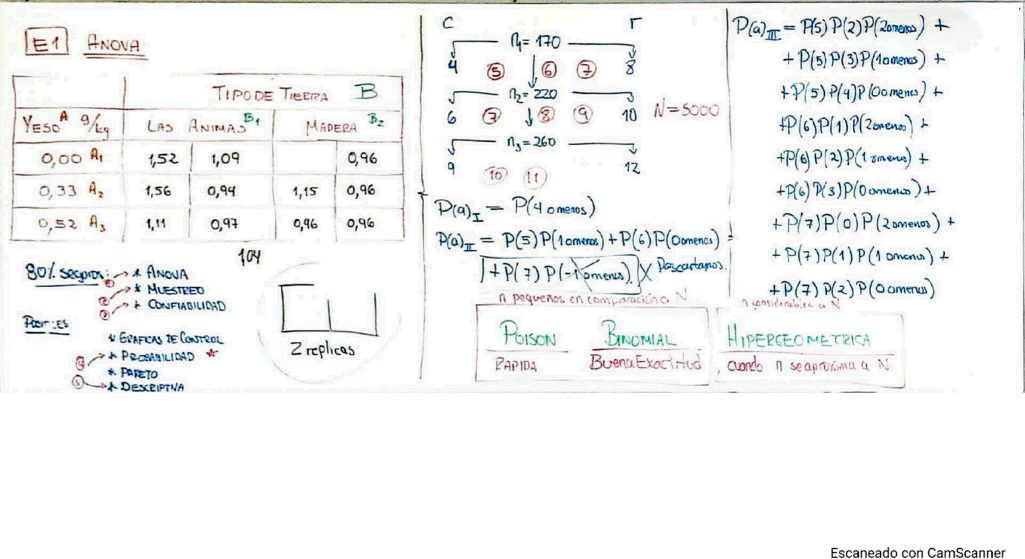 E1 ANOVA
TIPO DE TIERRA B
YESO A g/kg
LAS ANIMAS B1
MADERA B2
0,00 A1 1,52 1,09 0,96
0,33 A2 1,56 0,94 1,15 0,96
0,52 A3 1,11 0,97 0,96 0,96
104
80% seguros: * ANOVA
* MUESTREO
* CONFIABILIDAD
* GRAFICAS DE CONTROL
* PROBABILIDAD *
* PARETO
* DESCRIPTIVA
2 replicas
C r
n1 = 170
4 5 6 7 8
n2 = 220
6 7 8 9 10
N = 5000
n3 = 260
9 10 11 12
P(a)I = P(4 o menos)
P(a)II = P(5) P(1 o menos) + P(6) P(0 o menos) =
+ P(7) P(-1 o menos) Descartamos.
n pequeños en comparación a N
POISON BINOMIAL
RAPIDA Buena Exactitud
P(a)III = P(5) P(2) P(2 o menos) +
+ P(5) P(3) P(1 o menos) +
+ P(5) P(4) P(0 o menos) +
+ P(6) P(1) P(2 o menos) +
+ P(6) P(2) P(1 o menos) +
+ P(6) P(3) P(0 o menos) +
+ P(7) P(0) P(2 o menos) +
+ P(7) P(1) P(1 o menos) +
+ P(7) P(2) P(0 o menos)
n considerables a N
HIPERGEOMETRICA
cuando n se aproxima a N
Escaneado con CamScanner